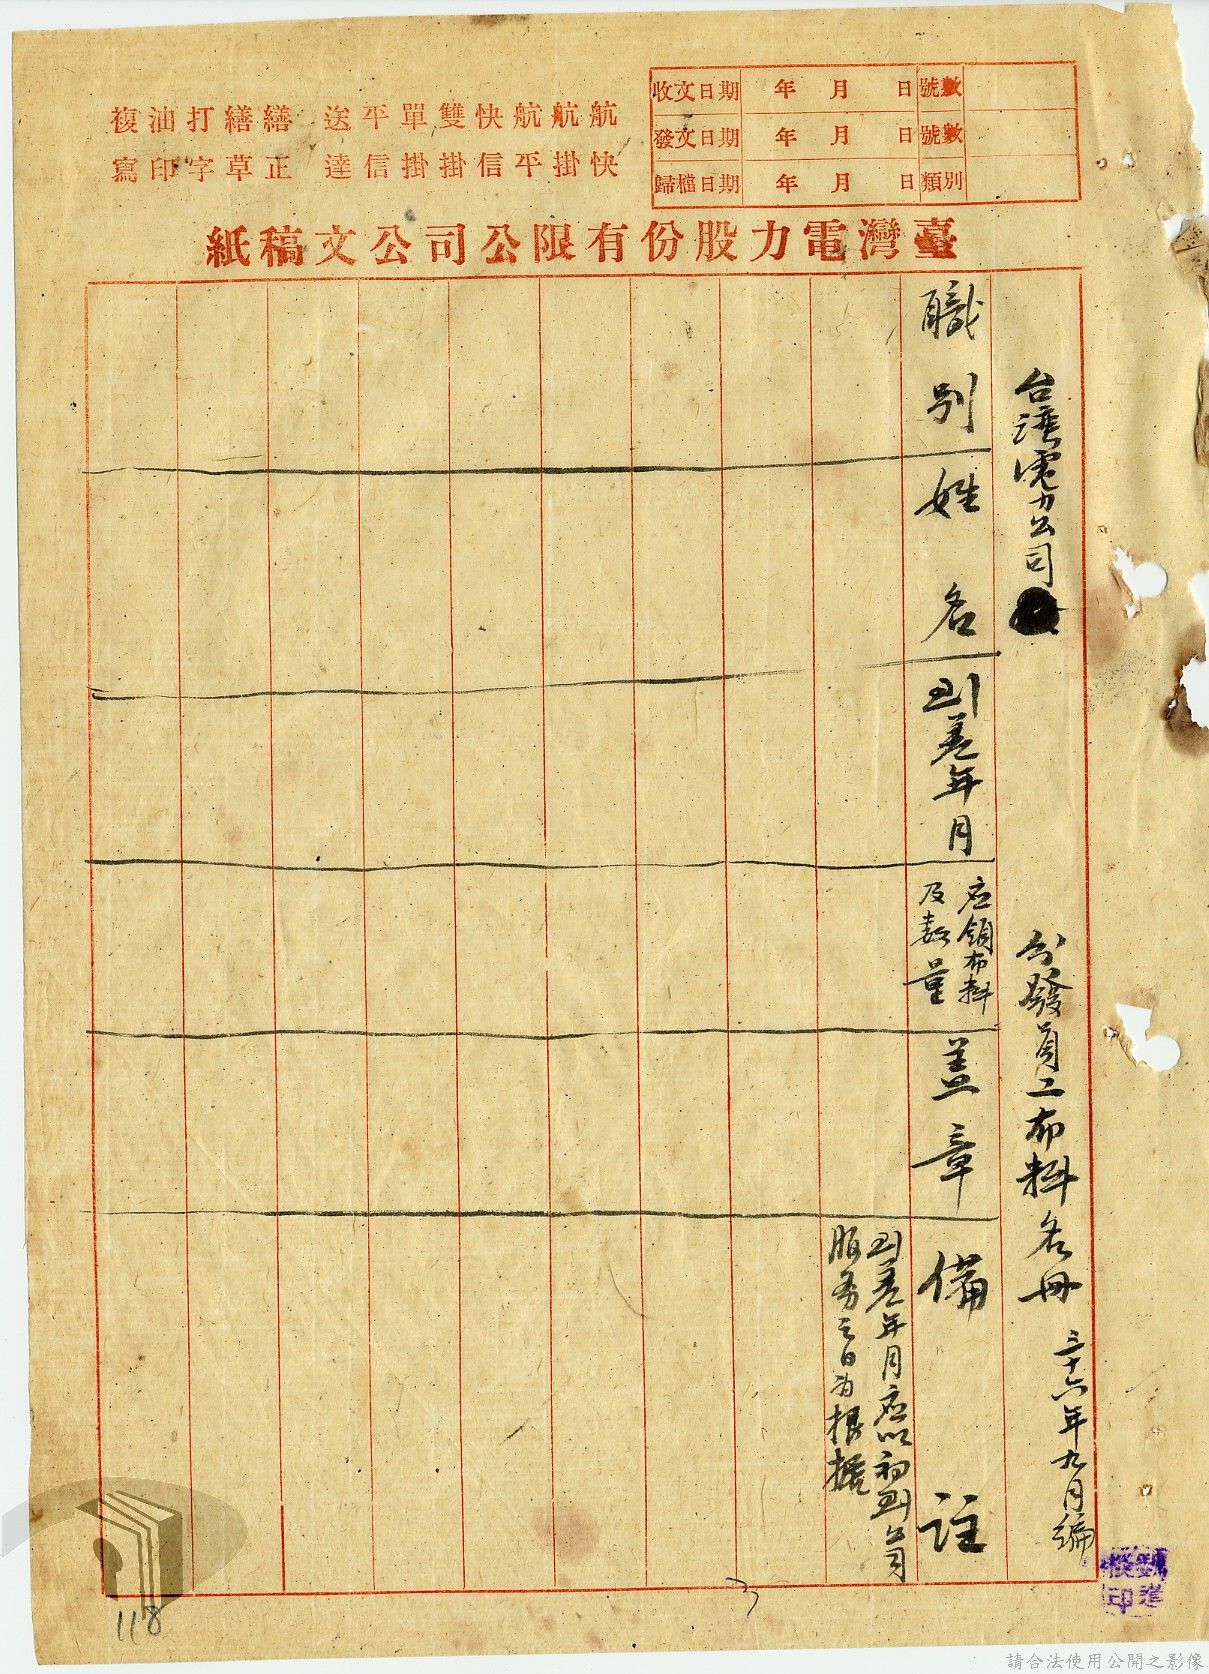 收文日期 年 月 日 號數
發文日期 年 月 日 號數
歸檔日期 年 月 日 類別
航快
航掛
航平
快信
雙掛
單掛
平信
送達
繕正
繕草
打字
油印
複寫
臺灣電力股份有限公司公文稿紙
台灣電力公司 分發員工布料名冊 三十六年九月編
職別
姓名
到差年月
应領布料
及数量
盖章
備註
到差年月应以初到公司
服务之日为根據
118
請合法使用公開之影像